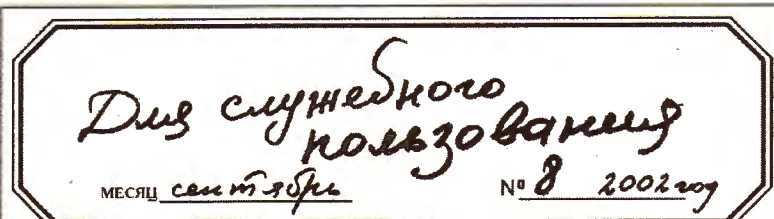 Для служебного
пользования
месяц сентябрь № 8 2002 год